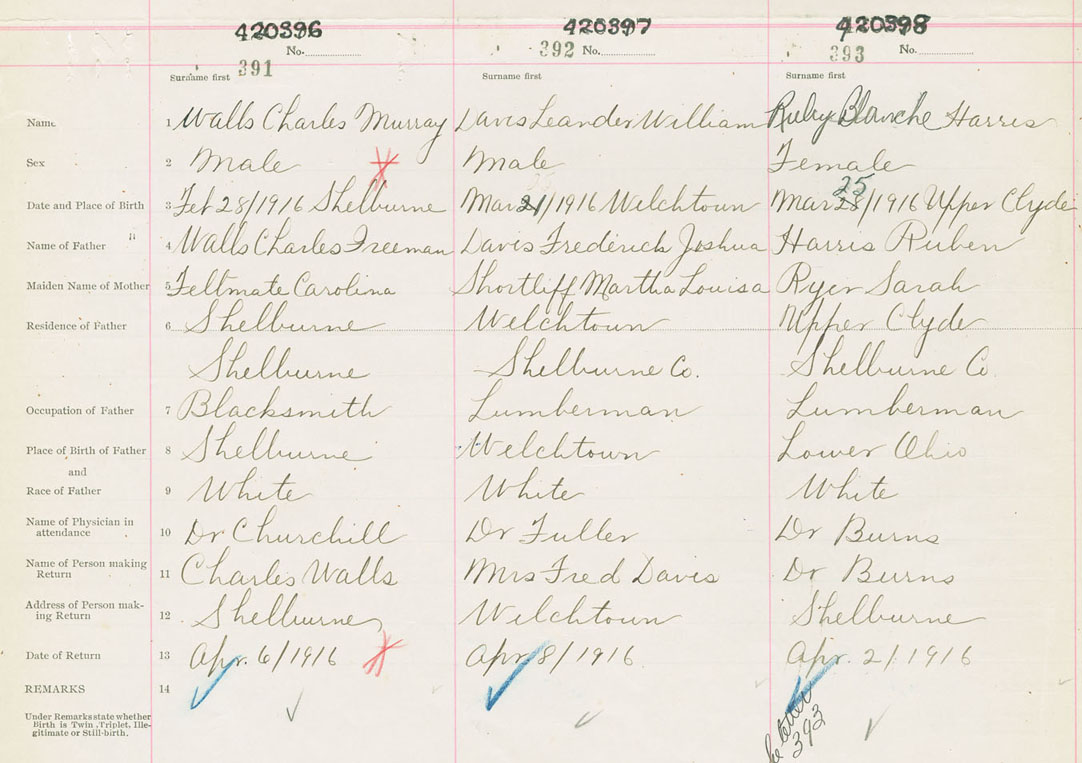 420396 420397 420398
No. No. No.
391 392 393
Surname first Surname first Surname first
Name 1 Walls Charles Murray Davis Leander William Ruby Blanche Harris
Sex 2 Male Male Female
25
Date and Place of Birth 3 Feb 28/1916 Shelburne Mar 21/1916 Welchtown Mar 28/1916 Upper Clyde
Name of Father " 4 Walls Charles Freeman Davis Frederick Joshua Harris Ruben
Maiden Name of Mother 5 Feltmate Carolina Shortliff Martha Louisa Ryer Sarah
Residence of Father 6 Shelburne Welchtown Upper Clyde
Shelburne Shelburne Co. Shelburne Co.
Occupation of Father 7 Blacksmith Lumberman Lumberman
Place of Birth of Father 8 Shelburne Welchtown Lower Ohio
and
Race of Father 9 White White White
Name of Physician in
attendance 10 Dr Churchill Dr Fuller Dr Burns
Name of Person making
Return 11 Charles Walls Mrs Fred Davis Dr Burns
Address of Person mak-
ing Return 12 Shelburne Welchtown Shelburne
Date of Return 13 Apr. 6/1916 Apr. 8/1916 Apr. 2/1916
REMARKS 14
Under Remarks state whether
Birth is Twin, Triplet, Ille-
gitimate or Still-birth.
letter
393